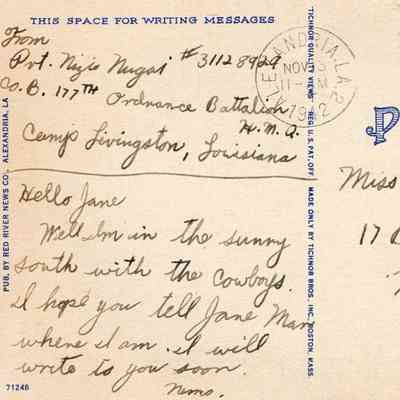 THIS SPACE FOR WRITING MESSAGES
From
Pvt. Nizio Nugai #31128929
Co. B. 177TH Ordnance Battalion
H.M.A.
Camp Livingston, Louisiana
Hello Jane
Well Im in the sunny
south with the cowboys.
I hope you tell Jane Man
where I am. I will
write to you soon.
71246
PUB. BY RED RIVER NEWS CO., ALEXANDRIA, LA
TICHNOR QUALITY VIEWS REG. U. S. PAT. OFF. MADE ONLY BY TICHNOR BROS., INC., BOSTON, MASS.
ALEXANDRIA, LA. 2
NOV
1942
P
Miss
17